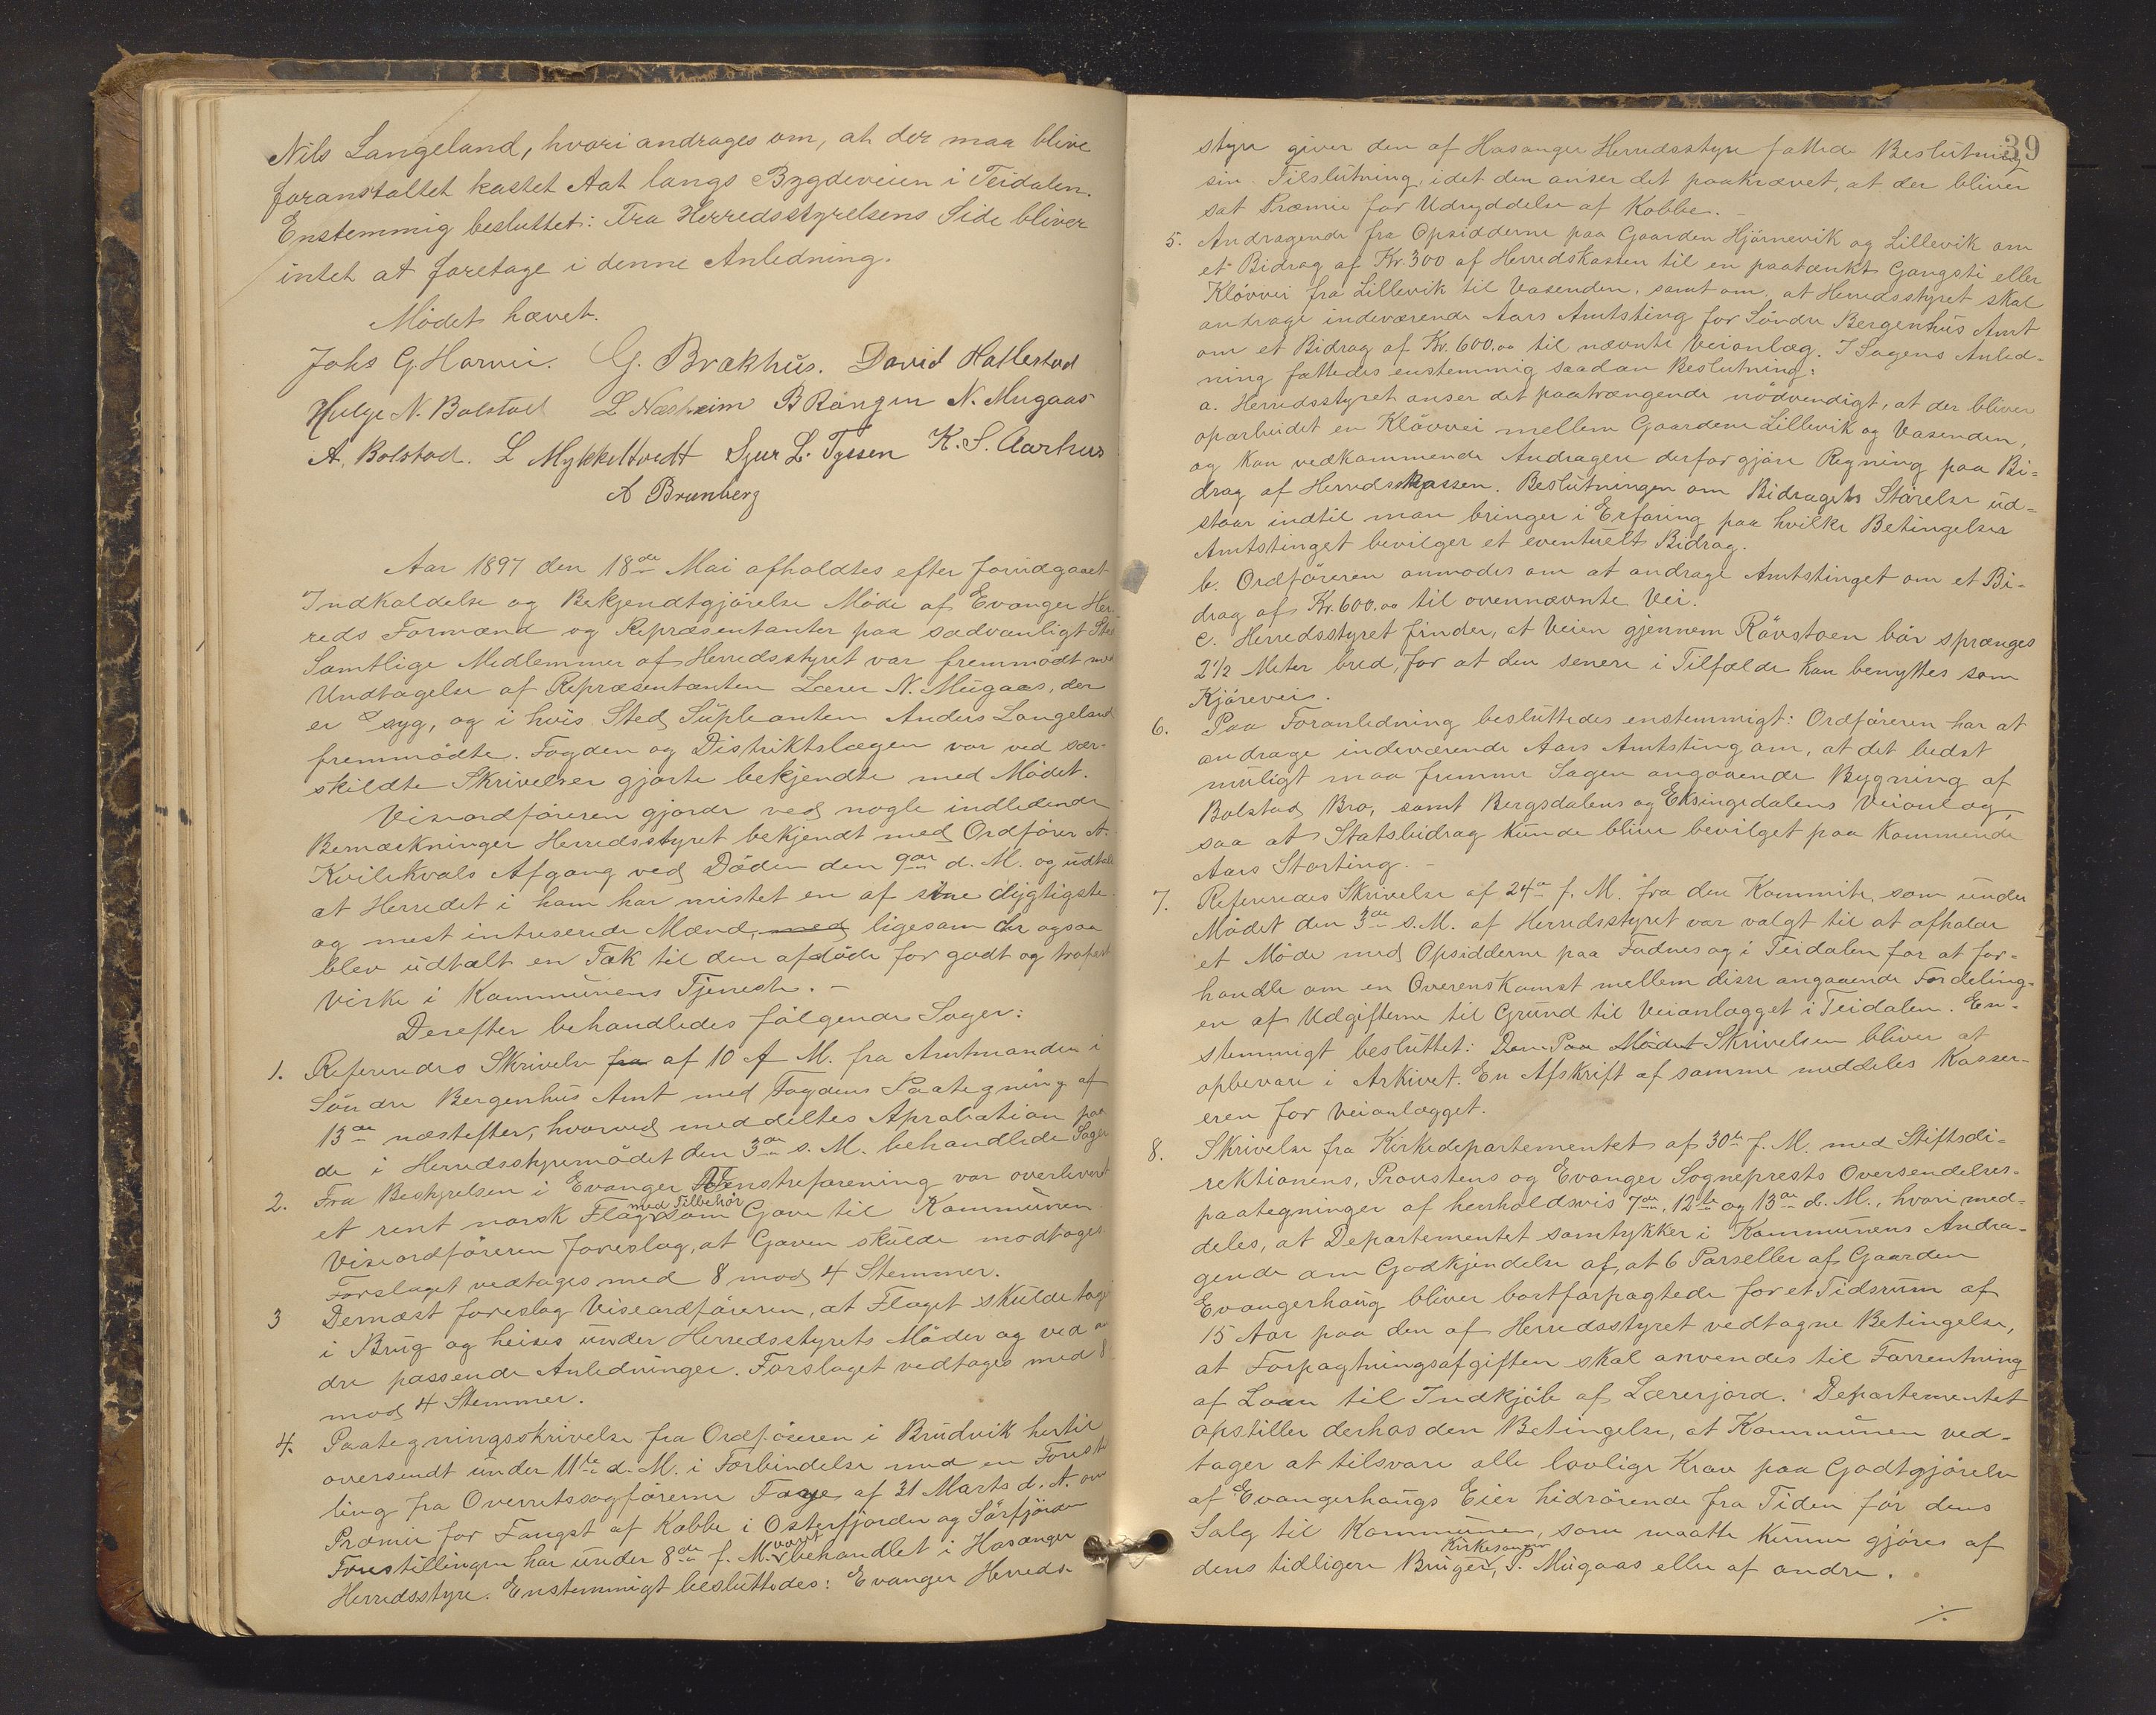 Nils Langeland, hvori andrages om, at der maa blive
foranstaltet kastet Aat langs Bygdeveien i Teidalen.
Enstemmig besluttet: Fra Herredsstyrelsens Side bliver
intet at foretage i denne Anledning.
Mödet hævet.
Johs G Horvei. G. Brakhus. David Hallestad
Helge N. Bolstad L Næsheim B Rongen N. Mugaas
A. Bolstad. L Mykkeltvedt Sjur L. Tyssen K. S. Aarhus
A Brunberg
Aar 1897 den 18de Mai afholdtes efter forudgaaet
Indkaldelse og Bekjendtgjörelse Möde af Evanger Her-
reds Formænd og Repræsentanter paa sædvanligt Sted
Samtlige Medlemmer af Herredsstyret var fremmödt med
Undtagelse af Repræsentanten Lærer N. Mugaas, der
er syg, og i hvis Sted Supleanten Anders Langeland
fremmödte. Fogden og Distriktslægen var ved sær-
skildte Skrivelser gjorte bekjendte med Mödet.
Viseordföreren gjorde ved nogle indledende
Bemærkninger Herredsstyret bekjendt med Ordförer A.
Kvilekvals Afgang ved Döden den 9de d. M. og udtalte
at Herredet i ham har mistet en af sine dygtigste
og mest intreserede Mænd, med ligesom der ogsaa
blev udtalt en Tak til den afdöde for godt og trofast
Virke i Kommunens Tjeneste. -
Derefter behandledes fölgende Sager:
1. Refereredes Skrivelse fra af 10 d M. fra Amtmanden i
Söndre Bergenhus Amt med Fogdens Paategning af
13de næstefter, hvorved meddeltes Aprobation paa
de i Herredsstyremödet den 3de s. M. behandlede Sager
2. Fra Bestyrelsen i Evanger Venstreforening var overleveret
et rent norsk Flag med Tilbehör som Gave til Kommunen.
Viseordföreren foreslog, at Gaven skulde modtages
Forslaget vedtages med 8 mod 4 Stemmer.
3 Dernæst foreslog Viseordföreren, at Flaget skulde tages
i Brug og heises under Herredsstyrets Möder og ved an
dre passende Anledninger. Forslaget vedtages med 8
mod 4 Stemmer.
4. Paategningsskrivelse fra Ordföreren i Brudvik hertil
oversendt under 11te d. M. i Forbindelse med en Forestil
ling fra Overretssagförerne Faye af 31 Marts d. A. om
Præmie for Fangst af Kobbe i Osterfjorden og Sörfjorden
Forestillingen har under 8de f. M. vært behandlet i Hosanger
Herredsstyre. Enstemmigt besluttedes: Evanger Herreds-
39
styre giver den af Hosanger Herredsstyre fattede Beslutning
sin Tilslutning, idet den anser det paakrævet, at der bliver
sat Præmie for Udryddelse af Kobbe. -
5. Andragende fra Opsidderne paa Gaarden Hjörnevik og Lillevik om
et Bidrag af Kr. 300 af Herredskassen til en paatænkt Gangsti eller
Klövvei fra Lillevik til Vasenden, samt om, at Herredsstyret skal
andrage indeværende Aars Amtsting for Söndre Bergenhus Amt
om et Bidrag af Kr. 600.00 til nævnte Veianlæg. I Sagens Anled-
ning fattedes enstemmig saadan Beslutning:
a. Herredsstyret anser det paatrængende nödvendigt, at der bliver
oparbeidet en Klövvei mellem Gaardene Lillevik og Vasenden,
og kan vedkommende Andragere derfor gjöre Regning paa Bi-
drag af Herredskassen. Beslutningen om Bidragets Störelse ud-
staar indtil man bringer i Erfaring paa hvilke Betingelser
Amtstinget bevilger et eventuelt Bidrag.
b. Ordföreren anmodes om at andrage Amtstinget om et Bi-
drag af Kr. 600.00 til ovennævnte Vei.
c. Herredsstyret finder, at Veien gjennem Rövstoen bör sprænges
2 1/2 Meter bred, for at den senere i Tilfælde kan benyttes som
Kjörevei.
6. Paa Foranledning besluttedes enstemmigt: Ordföreren har at
andrage indeværende Aars Amtsting om, at det bedst
muligt maa fremme Sagen angaaende Bygning af
Bolstad Bro, samt Bergsdalens og Eksingedalens Veianlæg,
saa at Statsbidrag kunde blive bevilget paa kommende
Aars Storting. -
7. Refereredes Skrivelse af 24de f. M. fra den Kommite, som under
Mödet den 3de s. M. af Herredsstyret var valgt til at afholde
et Möde med Opsidderne paa Fadnes og i Teidalen for at for-
handle om en Overenskomst mellem disse angaaende Fordeling-
en af Udgifterne til Grund til Veianlægget i Teidalen. En-
stemmigt besluttet: Den Paa Mödet Skrivelsen bliver at
opbevare i Arkivet. En Afskrift af samme meddeles Kasser-
eren for Veianlægget.
8. Skrivelse fra Kirkedepartementet af 30te f. M. med Stiftsdi-
rektionens, Provstens og Evanger Sogneprests Oversendelses-
paategninger af henholdsvis 7de, 12te og 13de d. M., hvori med-
deles, at Departementet samtykker i Kommunens Andra-
gende om Godkjendelse af, at 6 Parseller af Gaarden
Evangerhaug bliver bortforpagtede for et Tidsrum af
15 Aar paa den af Herredsstyret vedtagne Betingelse,
at Forpagtningsafgiften skal anvendes til Forrentning
af Laan til Indkjöb af Lærerjord. Departementet
opstiller derhos den Betingelse, at Kommunen ved-
tager at tilsvare alle lovlige Krav paa Godtgjörelse
af Evangerhaugs Eier hidrörende fra Tiden för dens
Salg til Kommunen, som maatte kunne gjöres af
dens tidligere Bruger, Kirkesanger P. Mugaas eller af andre.
./.